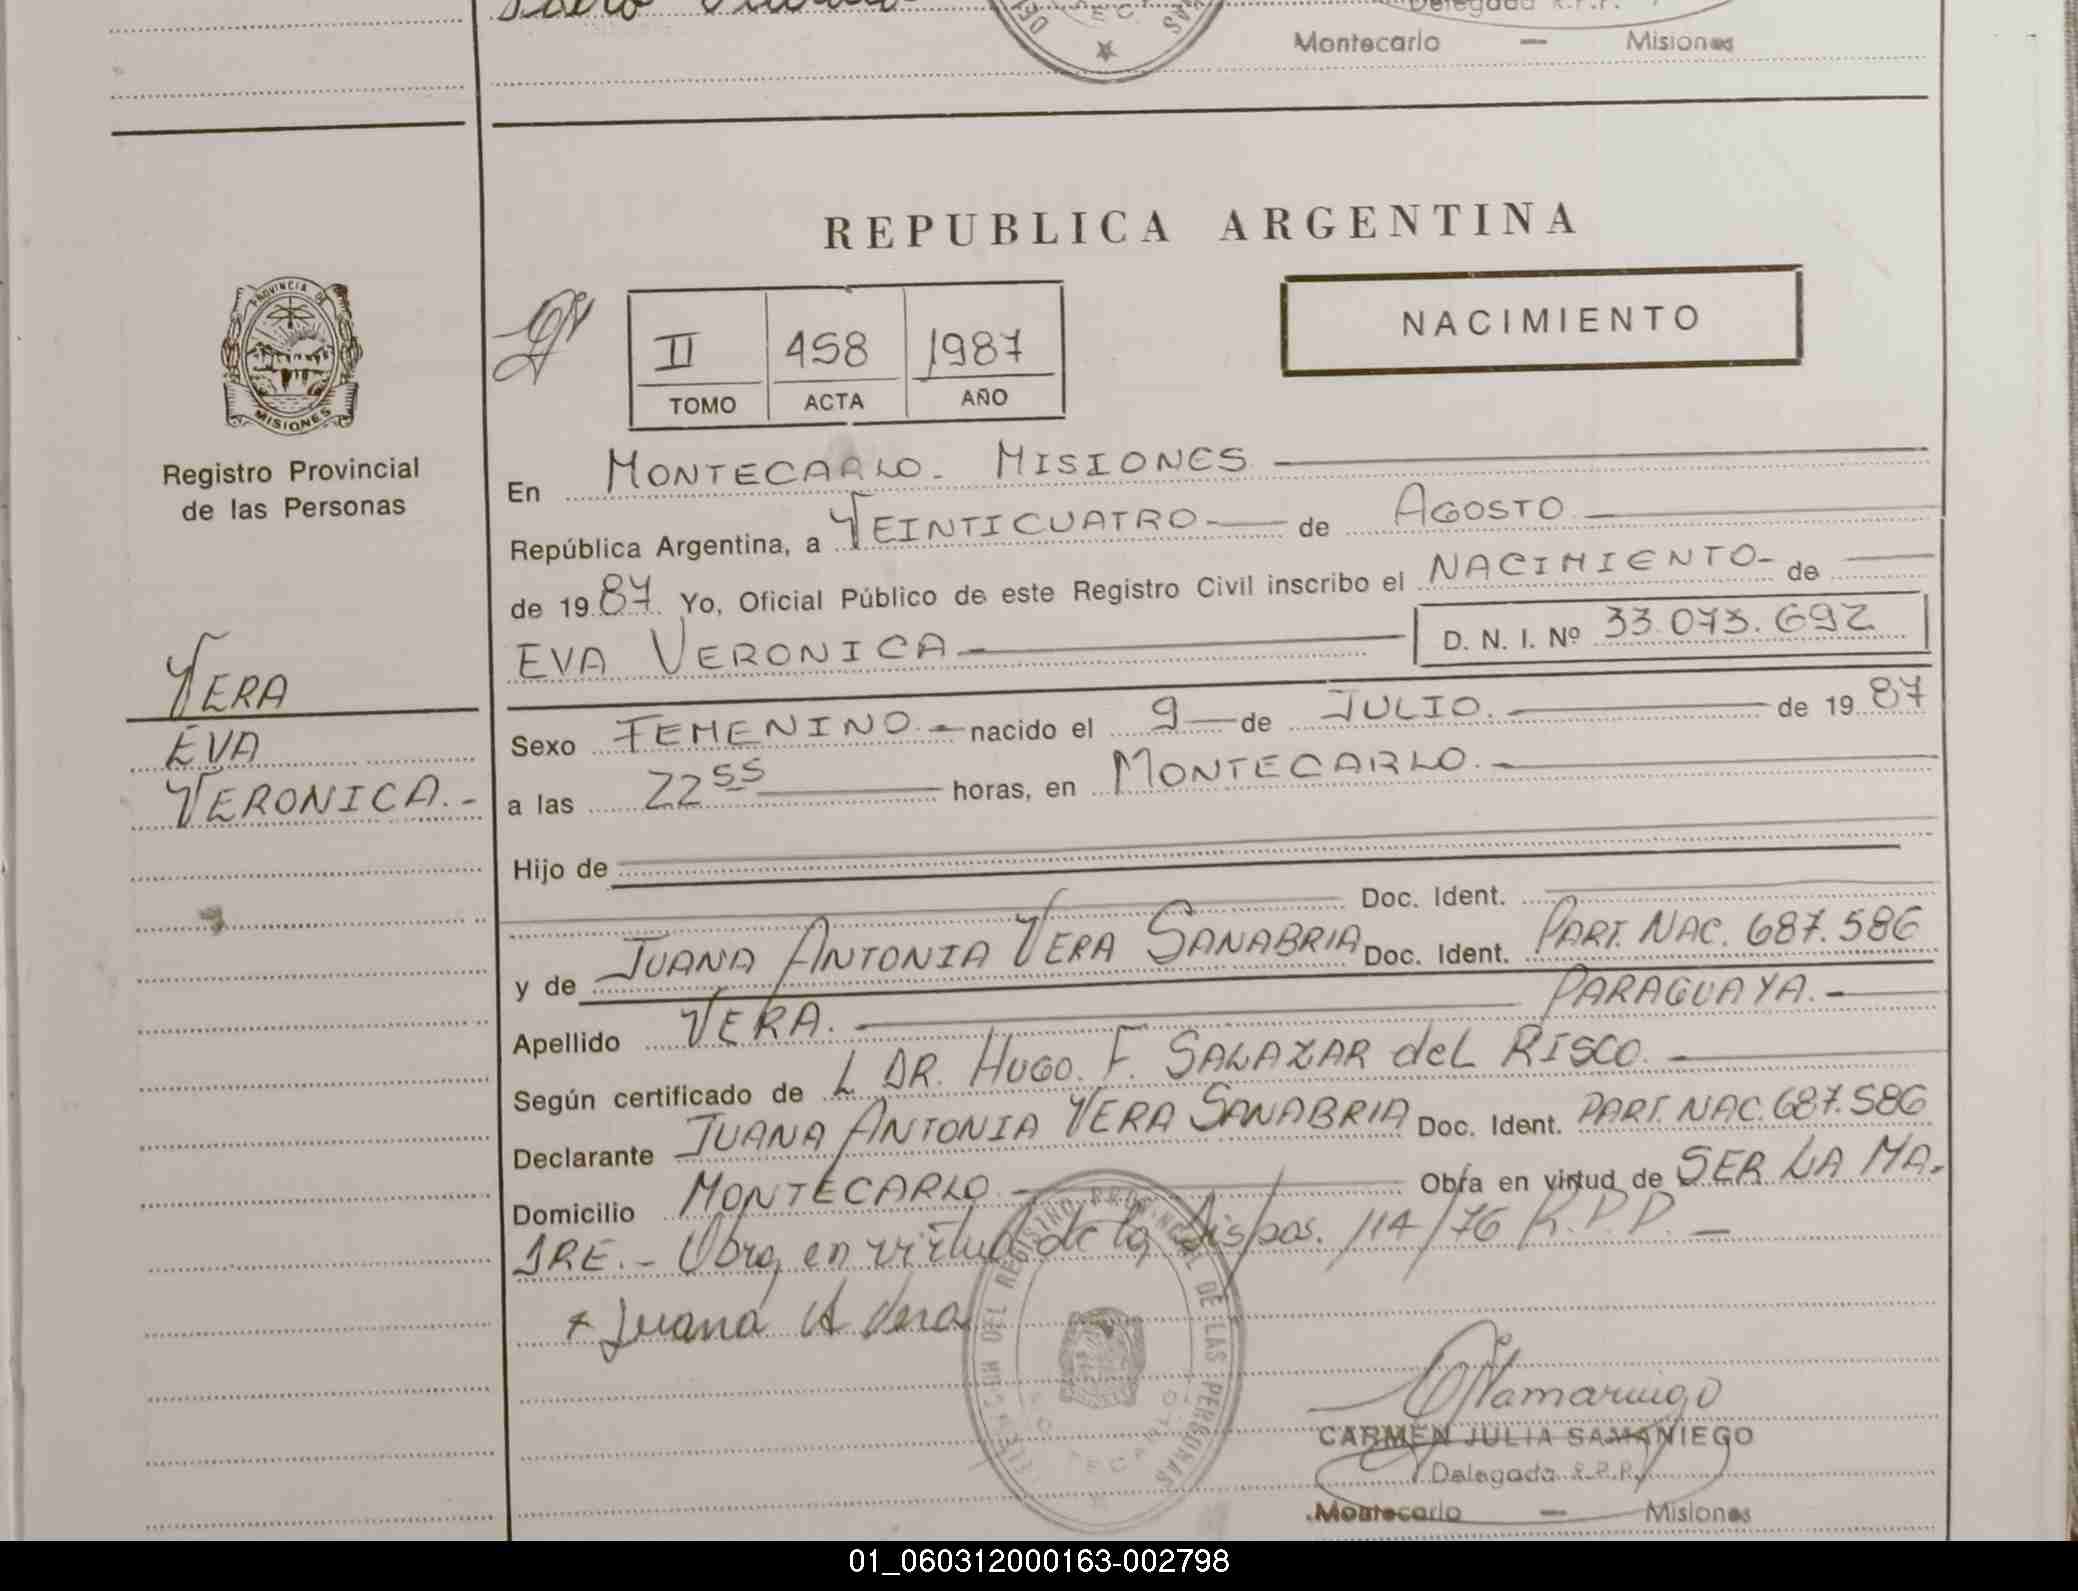 Delegada R.P.P.
Montecarlo — Misiones
REPUBLICA ARGENTINA
PROVINCIA DE
MISIONES
II 458 1987
TOMO ACTA AÑO
NACIMIENTO
Registro Provincial
de las Personas
VERA
EVA
VERONICA.-
En MONTECARLO - MISIONES
República Argentina, a VEINTICUATRO - de AGOSTO
de 1987. Yo, Oficial Público de este Registro Civil inscribo el NACIMIENTO - de
EVA VERONICA - D. N. I. Nº 33.073.692
Sexo FEMENINO.- nacido el 9 - de JULIO. de 1987
a las 22 55 horas, en MONTECARLO.-
Hijo de
Doc. Ident.
y de JUANA ANTONIA VERA SANABRIA Doc. Ident. PART. NAC. 687.586
Apellido VERA. PARAGUAYA.-
Según certificado de L DR. HUGO. F. SALAZAR del RISCO.
Declarante JUANA ANTONIA VERA SANABRIA Doc. Ident. PART. NAC. 687.586
Domicilio MONTECARLO.- Obra en virtud de SER LA MA-
DRE.- Obra en virtud de la Dispos. 114/76 R.P.P. -
x Juana A Vera
DEL REGISTRO PROVINCIAL DE LAS PERSONAS
CARMEN JULIA SAMANIEGO
Delegada R.P.P.
Montecarlo — Misiones
01_060312000163-002798